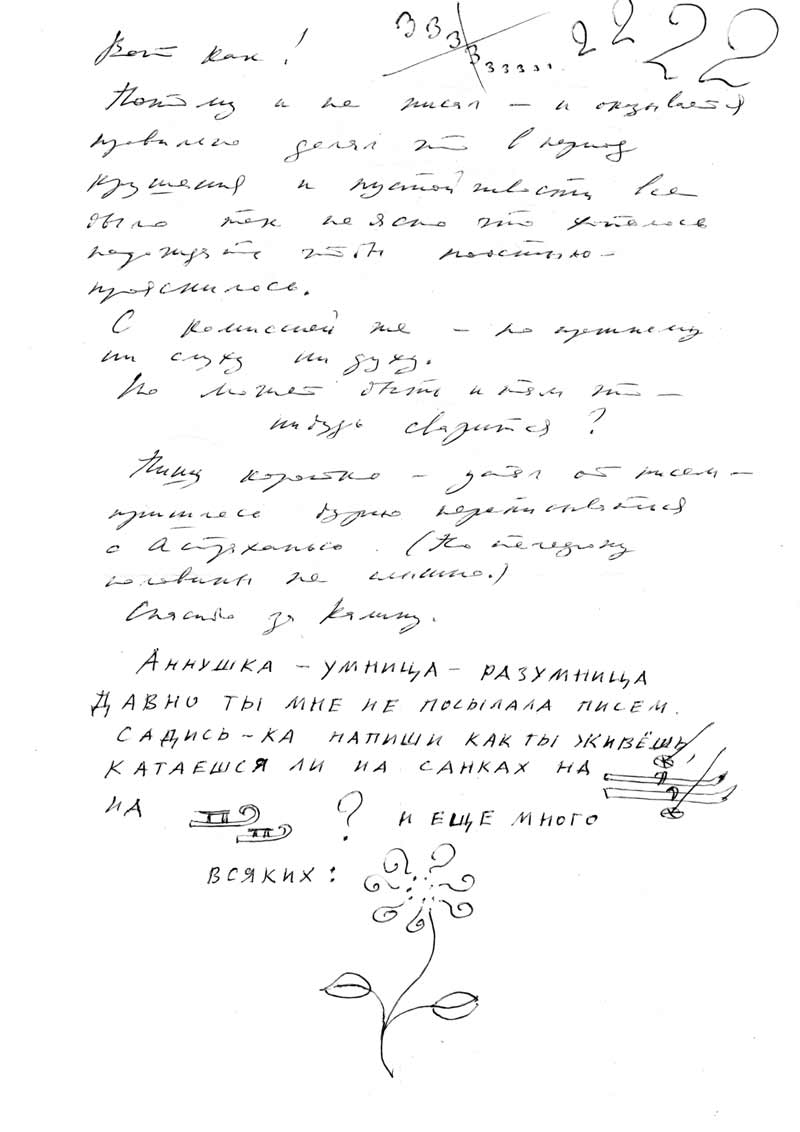 3 3 3 3 3 3 3 3 ... 2 2 2 2
Вот как!
Потому и не писал – и оказывается
правильно делал что в период
крушения и пустой все
было так неясно что хотелось
подождать чтоб
прояснилось.
С комиссией же – по прежнему
ни слуху ни духу.
Но может быть и там что –
нибудь сварится?
Пишу коротко – устал от писем –
пришлось бурно переписываться
с Астраханью. (Но
половины не слышно.)
Спасибо за Калину.
АННУШКА – УМНИЦА – РАЗУМНИЦА
ДАВНО ТЫ МНЕ НЕ ПОСЫЛАЛА ПИСЕМ.
САДИСЬ-КА НАПИШИ КАК ТЫ ЖИВЁШЬ,
КАТАЕШСЯ ЛИ НА САНКАХ НА
НА ? И ЕЩЕ МНОГО
ВСЯКИХ: